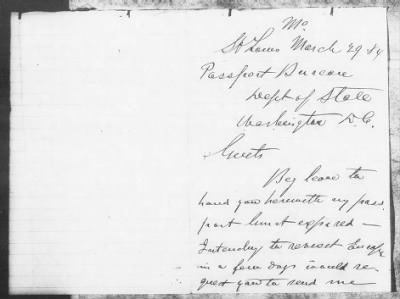 Mo
St Louis March 29 89
Passport Bureau
Dept of State
Washington D.C.
Gents
Beg leave to
hand you herewith my pass
port expired —
Intending to revisit Europe
in a few days would re
quest you to send me